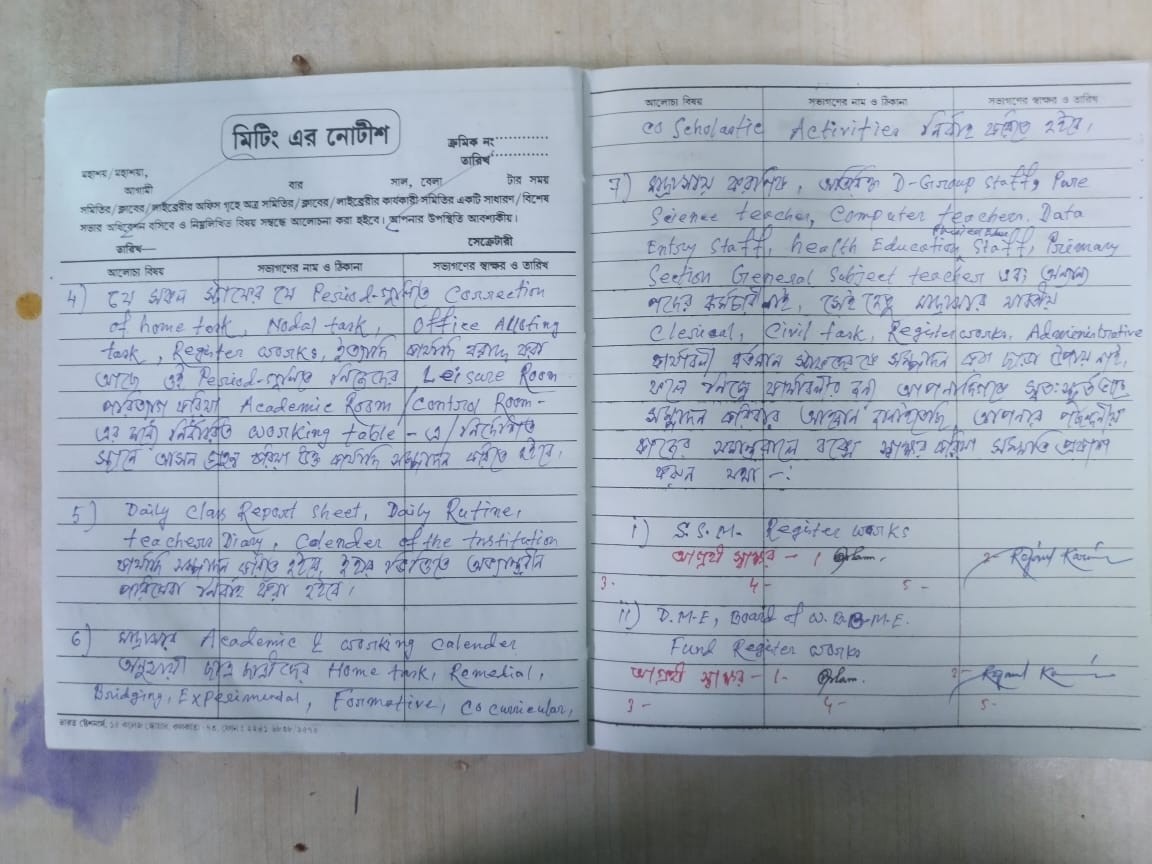 মিটিং এর নোটীশ
ক্রমিক নং
তারিখ
মহাশয়/মহাশয়া,
আগামী বার সাল, বেলা টার সময়
সমিতির/ক্লাবের/লাইব্রেরীর অফিস গৃহে অত্র সমিতির/ক্লাবের/লাইব্রেরীর কার্যকারী সমিতির একটি সাধারণ/বিশেষ
সভার অধিবেশন বসিবে ও নিম্নলিখিত বিষয় সম্বন্ধে আলোচনা করা হইবে। আপনার উপস্থিতি আবশ্যকীয়।
তারিখ— সেক্রেটারী
আলোচ্য বিষয় সভ্যগণের নাম ও ঠিকানা সভ্যগণের স্বাক্ষর ও তারিখ
4) যে সকল স্যারের যে Period-গুলিতে Correction
of home task, Nodal task, Office Alloting
task, Register works, ইত্যাদি কার্যাদি বরাদ্দ করা
আছে ওই Period-গুলিতে নিজেদের Leisure Room
পরিত্যাগ করিয়া Academic Room / Control Room-
এর মধ্যে নির্ধারিত working table-এ/নির্দেশিত
স্থানে আসন গ্রহণ করিয়া উক্ত কার্যাদি সম্পাদন করিতে হইবে।
5) Daily Class Report sheet, Daily Rutine,
teachers Diary, Calender of the Institution
কার্যাদি সম্পাদন করিতে হইবে, ইহার ভিত্তিতে অভ্যন্তরীন
পরিষেবা নির্বাহ করা হইবে।
6) মাদ্রাসার Academic & working Calender
অনুযায়ী ছাত্র ছাত্রীদের Home task, Remedial,
Bridging, Experimental, Formative, Co curricular,
আলোচ্য বিষয় সভ্যগণের নাম ও ঠিকানা সভ্যগণের স্বাক্ষর ও তারিখ
Co Scholastic Activities নির্বাহ করিতে হইবে।
7) মাদ্রাসায় করণিক, অতিরিক্ত D-Group staff, Pure
Science teacher, Computer teachers, Data
Entry Staff, health Education, Physical Edu. Staff, Primary
Section General Subject teacher এবং অন্যান্য
পদের কর্মচারী নাই, সেই হেতু মাদ্রাসার যাবতীয়
Clerical, Civil task, Register works, Administrative
কার্যাবলী বর্তমান স্যারদেরকে সম্পাদন করা ছাড়া উপায় নাই,
ফলে নিম্নে কার্যাবলীর জন্য আপনাদিগকে স্বতঃস্ফূর্তভাবে
সম্পাদন করিবার আহ্বান জানাইতেছি আপনার পছন্দনীয়
কাজের সমান্তরালে বক্সে স্বাক্ষর করিয়া সম্মতি প্রকাশ
করুন যথা -:
i) S.S.M- Register works
আগ্রহী স্বাক্ষর - 1 2- Rejaul Karim
3- 4- 5-
ii) D.M.E, Board of W.B.B.M.E.
Fund Register works
আগ্রহী স্বাক্ষর - 1- 2- Rejaul Karim
3- 4- 5-